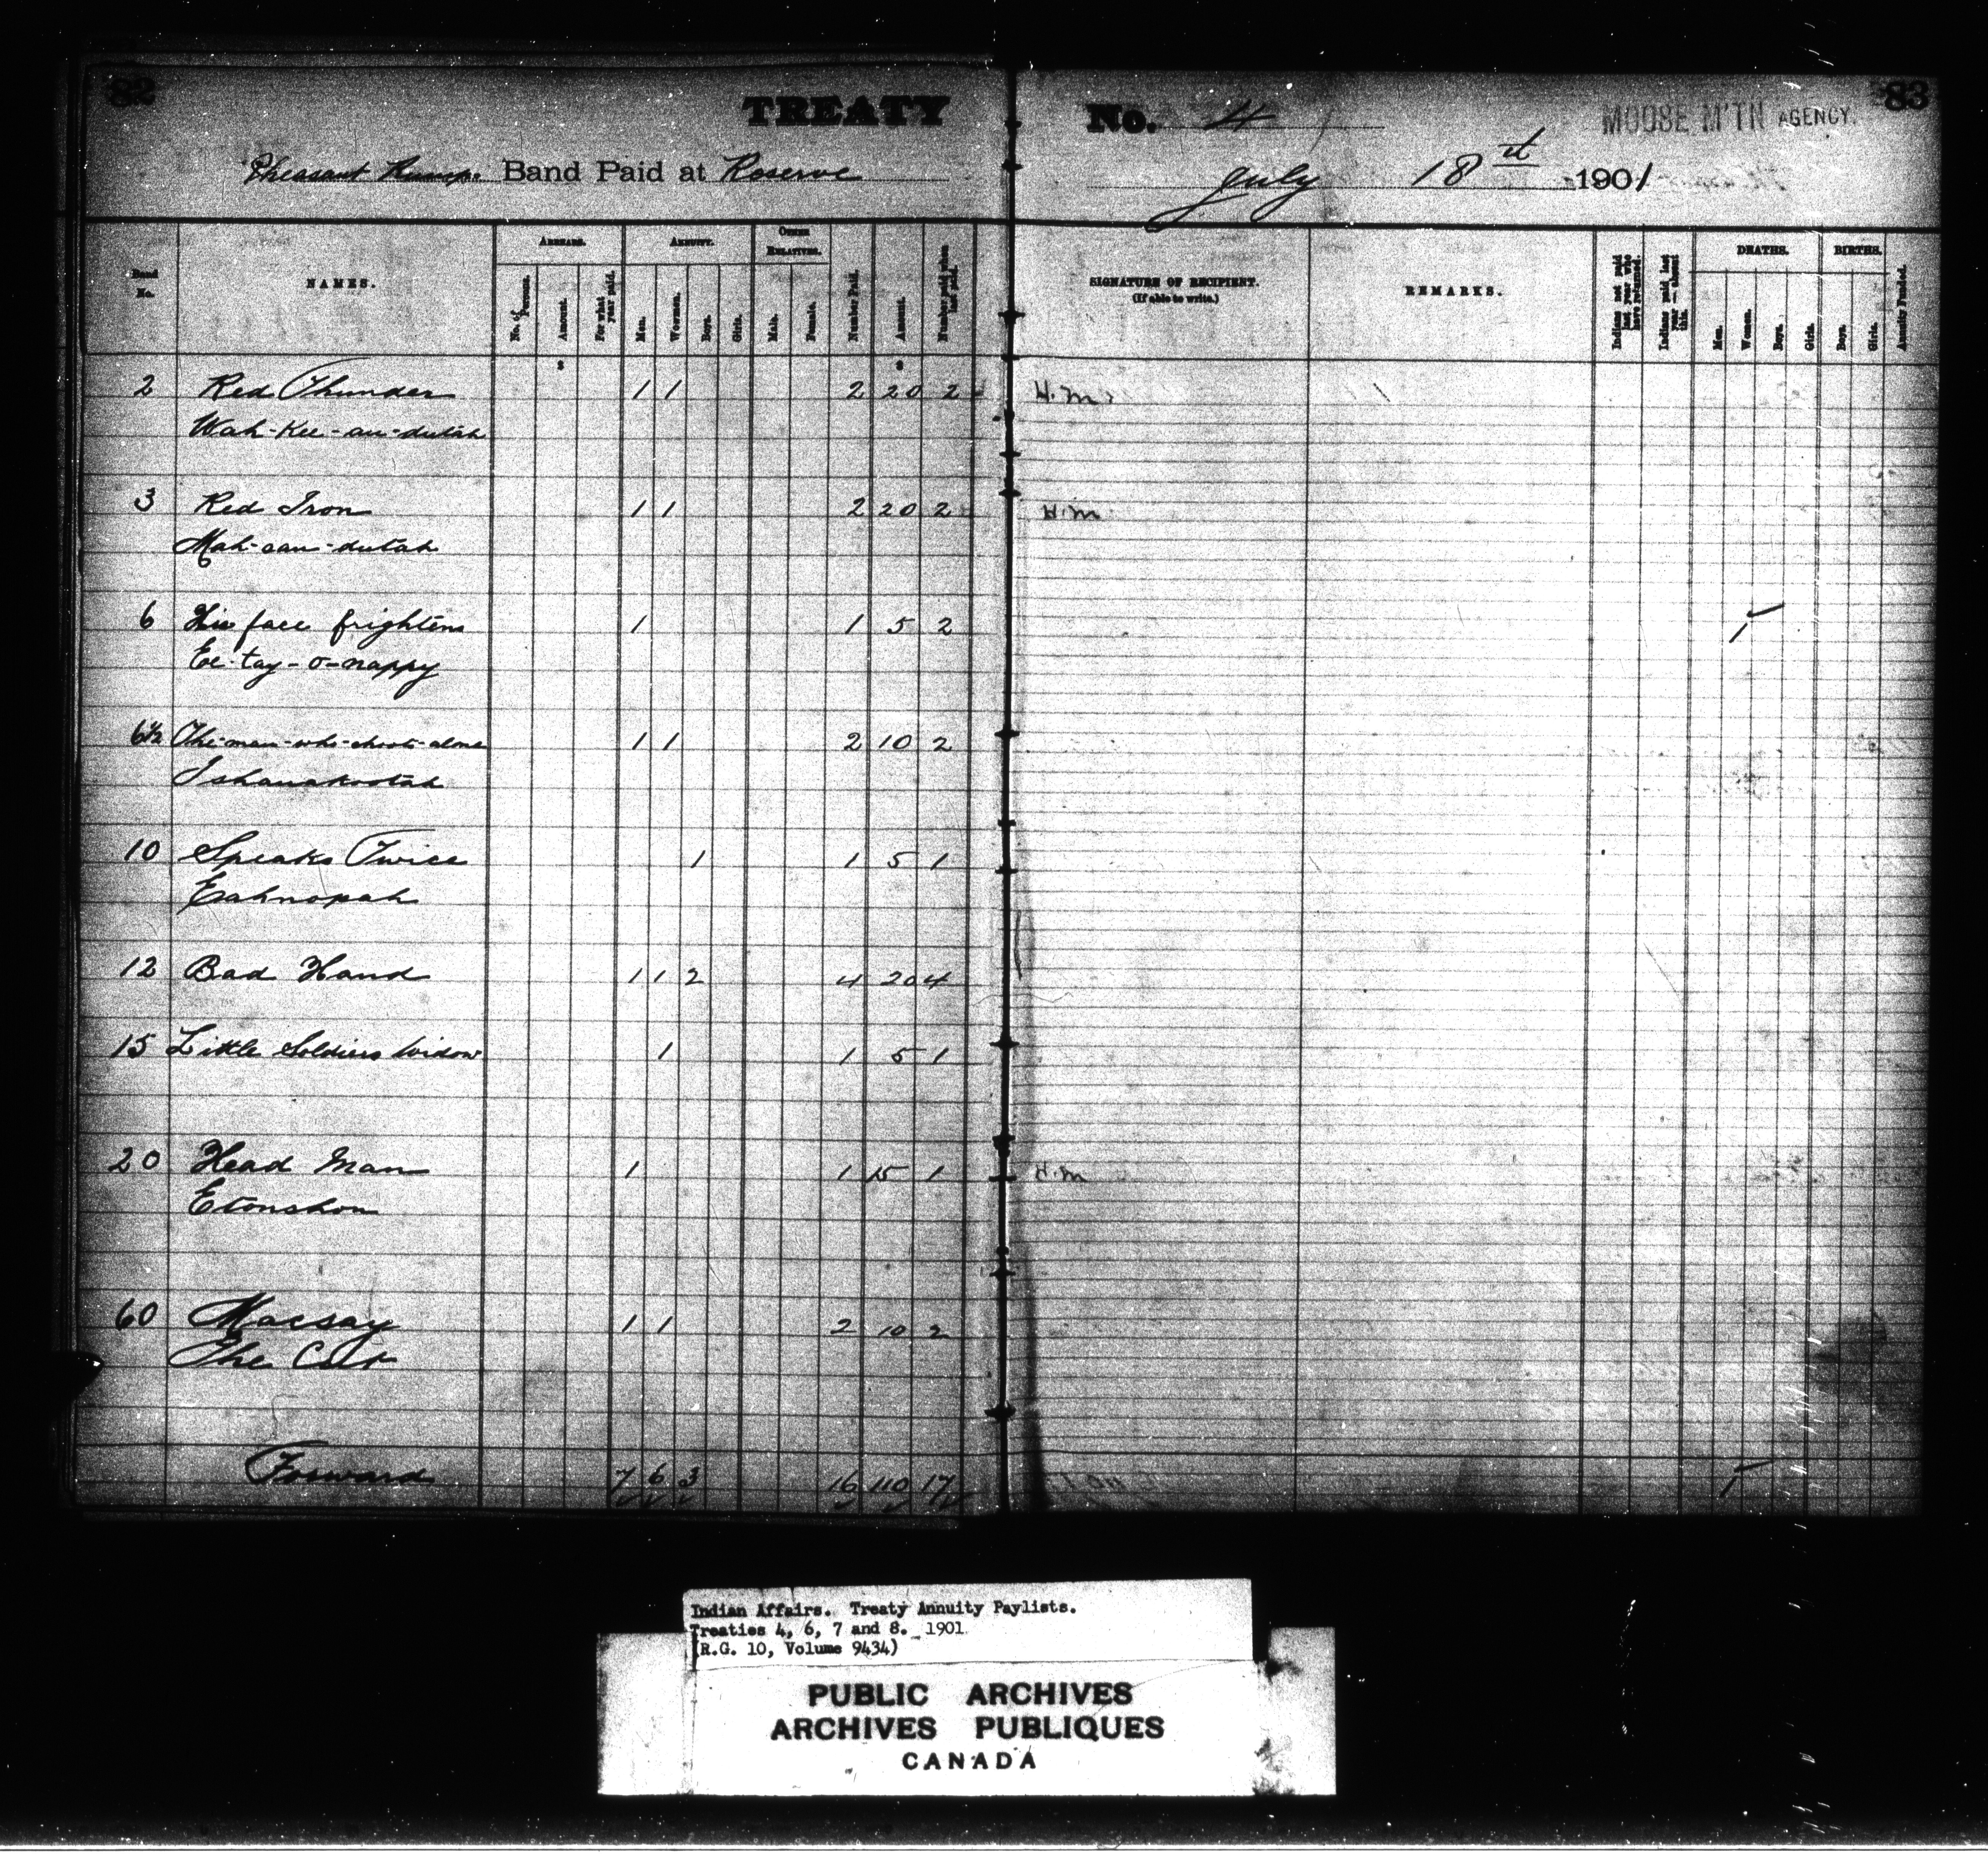 82
TREATY
No. 4
MOOSE M'TN AGENCY.
83
Pheasant Rump. Band Paid at Reserve
July 18th 1901
Band No.
NAMES.
ARREARS.
No. of Persons.
Amount.
For what year paid.
ANNUITY.
Men.
Women.
Boys.
Girls.
OTHER RELATIVES.
Male.
Female.
Number Paid.
Amount.
Number paid when last paid.
SIGNATURE OF RECIPIENT.
(If able to write.)
REMARKS.
Indians not paid last year who have returned.
Indians paid last year — absent this.
DEATHS.
Men.
Women.
Boys.
Girls.
BIRTHS.
Boys.
Girls.
Annuity Funded.
2 Red Thunder 1 1 2 20 2 H.M.
Wah-Kee-an-dutah
3 Red Iron 1 1 2 20 2 H.M
Mah-san-dutah
6 His face frightens 1 1 5 2 1
Ee-tay-o-nappy
6½ The-man-who-shoots-alone 1 1 2 10 2
Ishanakootah
10 Speaks Twice 1 1 5 1
Eahnopah
12 Bad Hand 1 1 2 4 20 4
15 Little Soldiers Widow 1 1 5 1
20 Head Man 1 1 15 1 H.M
Etonshon
60 Macsay 1 1 2 10 2
The Cat
Forward 7 6 3 16 110 17 1
Indian Affairs. Treaty Annuity Paylists.
Treaties 4, 6, 7 and 8. 1901
(R.G. 10, Volume 9434)
PUBLIC ARCHIVES
ARCHIVES PUBLIQUES
CANADA